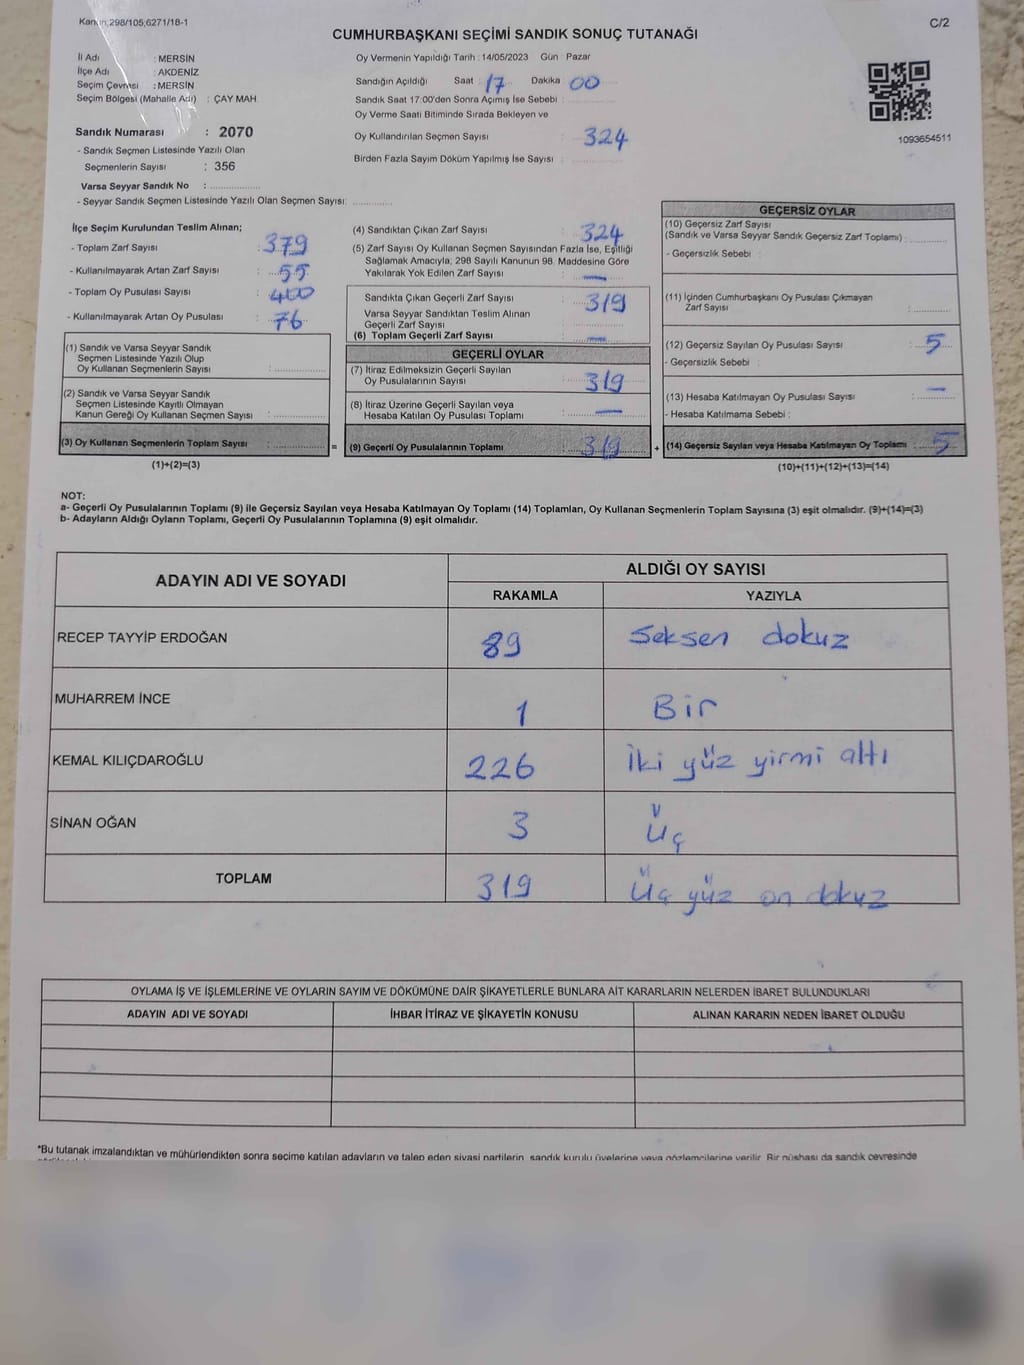 Kanun;298/105;6271/18-1
C/2
CUMHURBAŞKANI SEÇİMİ SANDIK SONUÇ TUTANAĞI
İl Adı : MERSİN
İlçe Adı : AKDENİZ
Seçim Çevresi : MERSİN
Seçim Bölgesi (Mahalle Adı) : ÇAY MAH.
Sandık Numarası : 2070
- Sandık Seçmen Listesinde Yazılı Olan
Seçmenlerin Sayısı : 356
Varsa Seyyar Sandık No :
- Seyyar Sandık Seçmen Listesinde Yazılı Olan Seçmen Sayısı:
Oy Vermenin Yapıldığı Tarih : 14/05/2023 Gün Pazar
Sandığın Açıldığı Saat : 17 Dakika 00
Sandık Saat 17:00'den Sonra Açımış İse Sebebi :
Oy Verme Saati Bitiminde Sırada Bekleyen ve
Oy Kullandırılan Seçmen Sayısı : 324
Birden Fazla Sayım Döküm Yapılmış İse Sayısı :
1093654511
İlçe Seçim Kurulundan Teslim Alınan;
- Toplam Zarf Sayısı : 379
- Kullanılmayarak Artan Zarf Sayısı : 55
- Toplam Oy Pusulası Sayısı : 400
- Kullanılmayarak Artan Oy Pusulası : 76
(1) Sandık ve Varsa Seyyar Sandık
Seçmen Listesinde Yazılı Olup
Oy Kullanan Seçmenlerin Sayısı :
(2) Sandık ve Varsa Seyyar Sandık
Seçmen Listesinde Kayıtlı Olmayan
Kanun Gereği Oy Kullanan Seçmen Sayısı :
(3) Oy Kullanan Seçmenlerin Toplam Sayısı :
(1)+(2)=(3)
(4) Sandıktan Çıkan Zarf Sayısı : 324
(5) Zarf Sayısı Oy Kullanan Seçmen Sayısından Fazla İse, Eşitliği
Sağlamak Amacıyla; 298 Sayılı Kanunun 98. Maddesine Göre
Yakılarak Yok Edilen Zarf Sayısı : —
Sandıkta Çıkan Geçerli Zarf Sayısı : 319
Varsa Seyyar Sandıktan Teslim Alınan
Geçerli Zarf Sayısı :
(6) Toplam Geçerli Zarf Sayısı : —
GEÇERLİ OYLAR
(7) İtiraz Edilmeksizin Geçerli Sayılan
Oy Pusulalarının Sayısı : 319
(8) İtiraz Üzerine Geçerli Sayılan veya
Hesaba Katılan Oy Pusulası Toplamı : —
= (9) Geçerli Oy Pusulalarının Toplamı : 319
GEÇERSİZ OYLAR
(10) Geçersiz Zarf Sayısı
(Sandık ve Varsa Seyyar Sandık Geçersiz Zarf Toplamı) :
- Geçersizlik Sebebi :
(11) İçinden Cumhurbaşkanı Oy Pusulası Çıkmayan
Zarf Sayısı :
(12) Geçersiz Sayılan Oy Pusulası Sayısı : 5
- Geçersizlik Sebebi :
(13) Hesaba Katılmayan Oy Pusulası Sayısı : —
- Hesaba Katılmama Sebebi :
+ (14) Geçersiz Sayılan veya Hesaba Katılmayan Oy Toplamı : 5
(10)+(11)+(12)+(13)=(14)
NOT:
a- Geçerli Oy Pusulalarının Toplamı (9) ile Geçersiz Sayılan veya Hesaba Katılmayan Oy Toplamı (14) Toplamları, Oy Kullanan Seçmenlerin Toplam Sayısına (3) eşit olmalıdır. (9)+(14)=(3)
b- Adayların Aldığı Oyların Toplamı, Geçerli Oy Pusulalarının Toplamına (9) eşit olmalıdır.
ADAYIN ADI VE SOYADI
ALDIĞI OY SAYISI
RAKAMLA YAZIYLA
RECEP TAYYİP ERDOĞAN 89 Seksen dokuz
MUHARREM İNCE 1 Bir
KEMAL KILIÇDAROĞLU 226 İki yüz yirmi altı
SİNAN OĞAN 3 Üç
TOPLAM 319 Üç yüz on dokuz
OYLAMA İŞ VE İŞLEMLERİNE VE OYLARIN SAYIM VE DÖKÜMÜNE DAİR ŞİKAYETLERLE BUNLARA AİT KARARLARIN NELERDEN İBARET BULUNDUKLARI
ADAYIN ADI VE SOYADI İHBAR İTİRAZ VE ŞİKAYETİN KONUSU ALINAN KARARIN NEDEN İBARET OLDUĞU
*Bu tutanak imzalandıktan ve mühürlendikten sonra seçime katılan adayların ve talep eden siyasi partilerin, sandık kurulu üyelerine veya gözlemcilerine verilir. Bir nüshası da sandık çevresinde